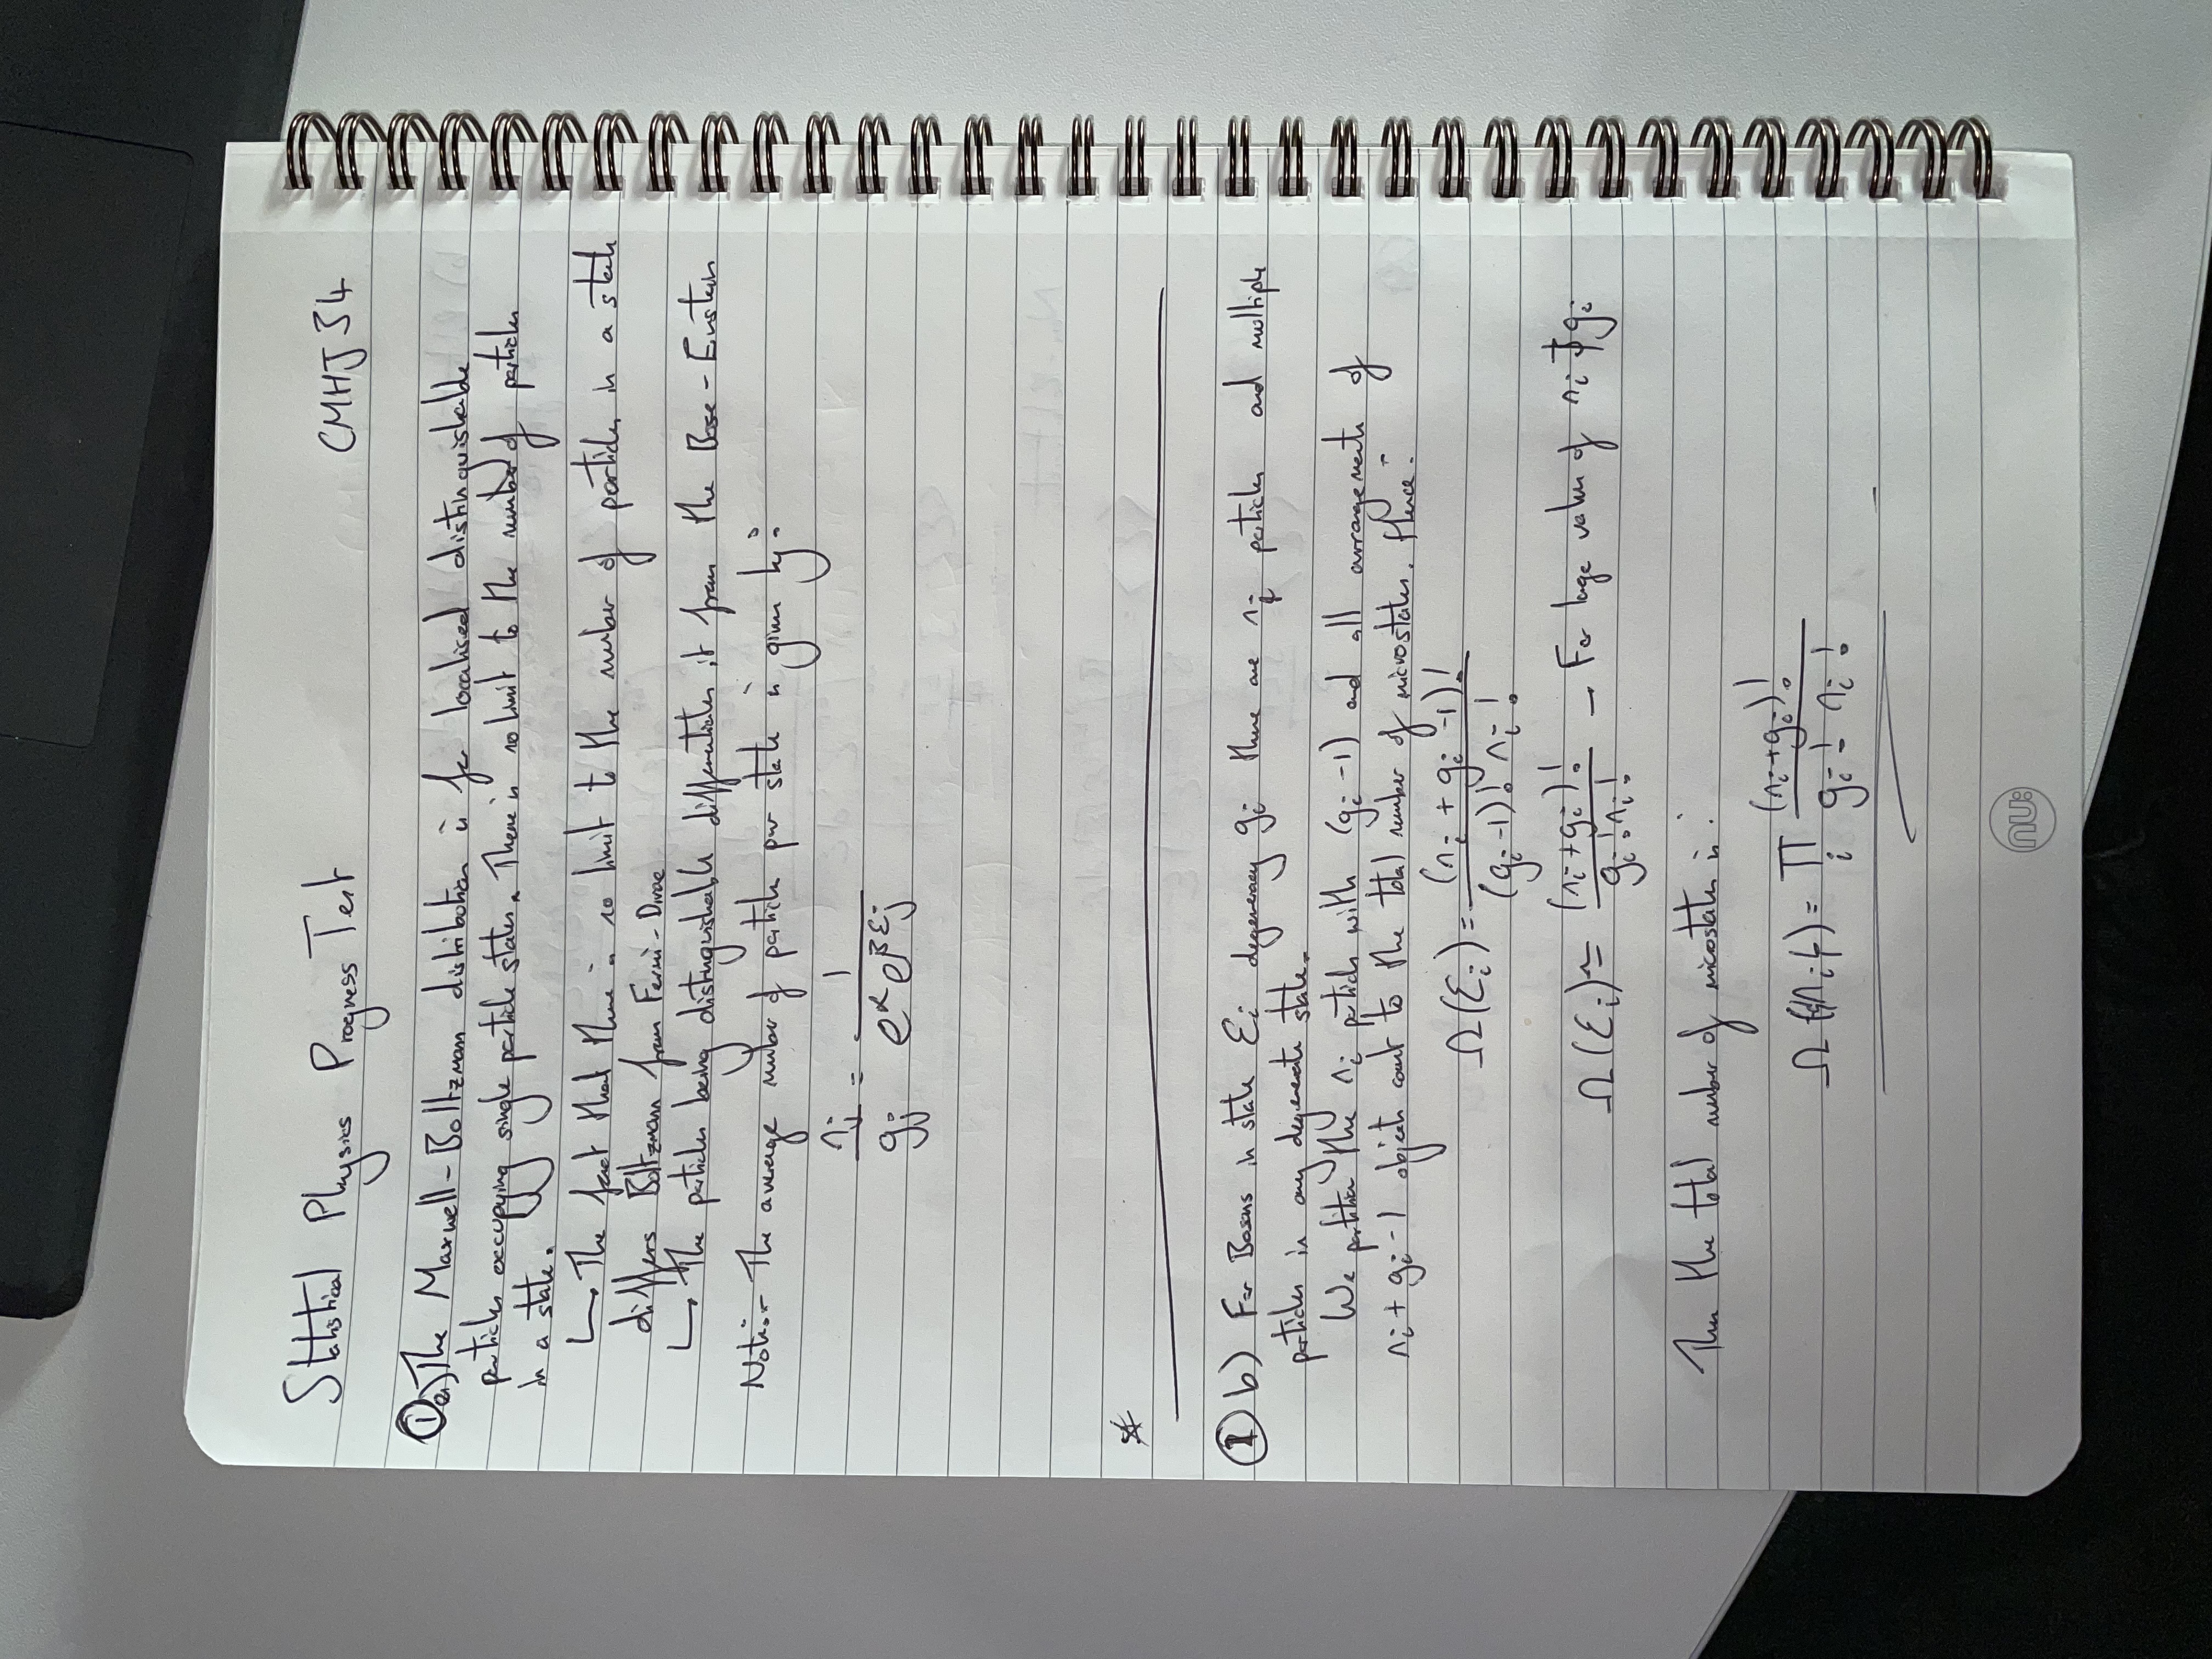 Statistical Physics Progress Test CMHJ34
① a) The Maxwell-Boltzmann distribution is for localised distinguishable
particles occupying single particle states. There is no limit to the number of particles
in a state.
↳ The fact that there is no limit to the number of particles in a state
differs Boltzmann from Fermi-Dirac
↳ The particles being distinguishable differentiates it from the Bose-Einstein
Note:- The average number of particles per state is given by:
nⱼ/gⱼ = 1/(e^α e^(βεⱼ))
☆
① b) For Bosons in state εᵢ degeneracy gᵢ there are nᵢ particles and multiple
particles in any degenerate state.
We partition the nᵢ particles with (gᵢ-1) and all arrangements of
nᵢ + gᵢ - 1 objects count to the total number of microstates. Hence:
Ω(εᵢ) = (nᵢ + gᵢ - 1)! / ((gᵢ-1)! nᵢ!)
Ω(εᵢ) ≃ (nᵢ+gᵢ)! / (gᵢ! nᵢ!) - For large values of nᵢ & gᵢ
Then the total number of microstates is:
Ω({nᵢ}) = ∏ᵢ (nᵢ+gᵢ)! / (gᵢ! nᵢ!)
nu: